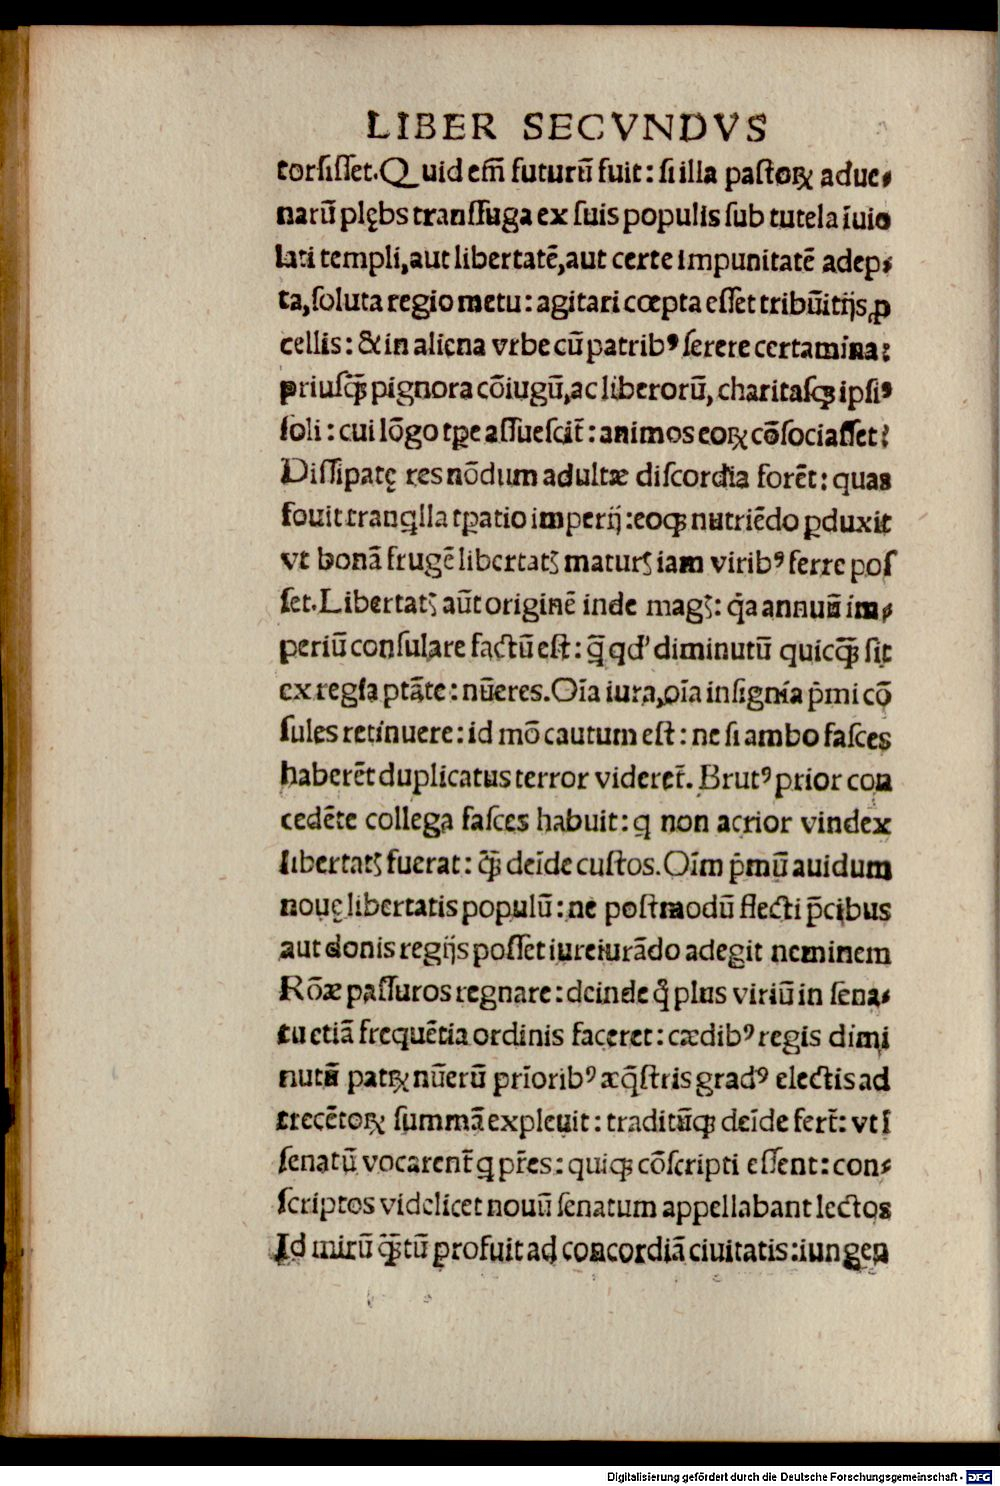 LIBER SECVNDVS
torsisset.Quid em̄ futurū fuit: si illa pastoꝝ adue⸗
narū plębs transfuga ex suis populis sub tutela īuio
lati templi,aut libertatē,aut certe impunitatē adep⸗
ta,soluta regio metu: agitari cœpta esset tribūitijs,ꝓ
cellis: & in aliena vrbe cū patribꝰ serere certamina:
priusꝙ̄ pignora cōiugū,ac liberorū, charitasꝗ ipsiꝰ
soli: cui lōgo tꝑe assuescit̄: animos eoꝝ cōsociasset:
Dissipatę res nōdum adultæ discordia forēt: quas
fouit tranꝗlla tꝑatio imperij: eoꝗ nutriēdo ꝑduxit
vt bonā frugē libertatꝭ maturꝭ iam viribꝰ ferre pos
set. Libertatꝭ aūt originē inde magꝭ: q̇a annuū im⸗
periū consulare factū est: q̄ qd' diminutū quicꝙ̄ sit
ex regia ptāte: nūeres. Oīa iura,oīa insignia p̄mi cō
sules retinuere: id mō cautum est: ne si ambo fasces
haberēt duplicatus terror videret̄. Brutꝰ prior con
cedēte collega fasces habuit: ꝗ non acrior vindex
libertatꝭ fuerat: ꝙ̄ deīde custos. Oīm p̄mū auidum
nouę libertatis populū: ne postmodū flecti p̄cibus
aut donis regijs posset iureiurādo adegit neminem
Rōæ passuros regnare: deinde q̊ plus viriū in sena⸗
tu etiā frequētia ordinis faceret: cædibꝰ regis dimi
nutū patꝝ nūerū prīoribꝰ æq̄stris gradꝰ electis ad
trecētoꝝ summā expleuit: traditūꝗ deīde fert̄: vt ī
senatū vocarent̄ ꝗ pr̄es: quiꝗ cōscripti essent: con⸗
scriptos videlicet nouū senatum appellabant lectos
Id mirū ꝙ̄tū ꝓfuit ad concordiā ciuitatis: iungen
Digitalisierung gefördert durch die Deutsche Forschungsgemeinschaft - DFG